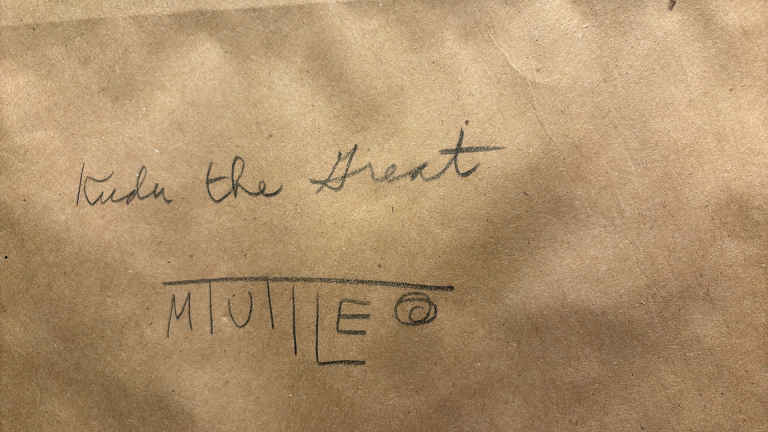 Kudu the Great
MTUTTLE ©